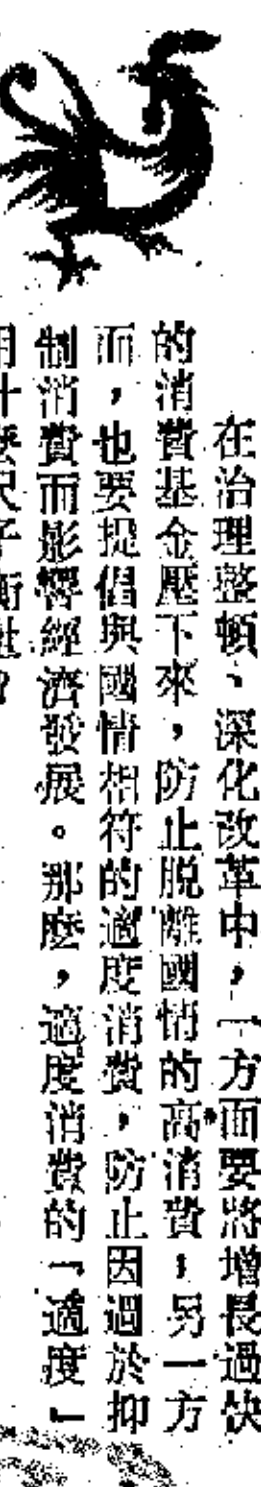 在治理整頓、深化改革中，一方面要將增長過快
的消費基金壓下來，防止脫離國情的高消費，另一方
面，也要提倡與國情相符的適度消費，防止因過於抑
制消費而影響經濟發展。那麽，適度消費的「適度」
用什麽尺子衡量？